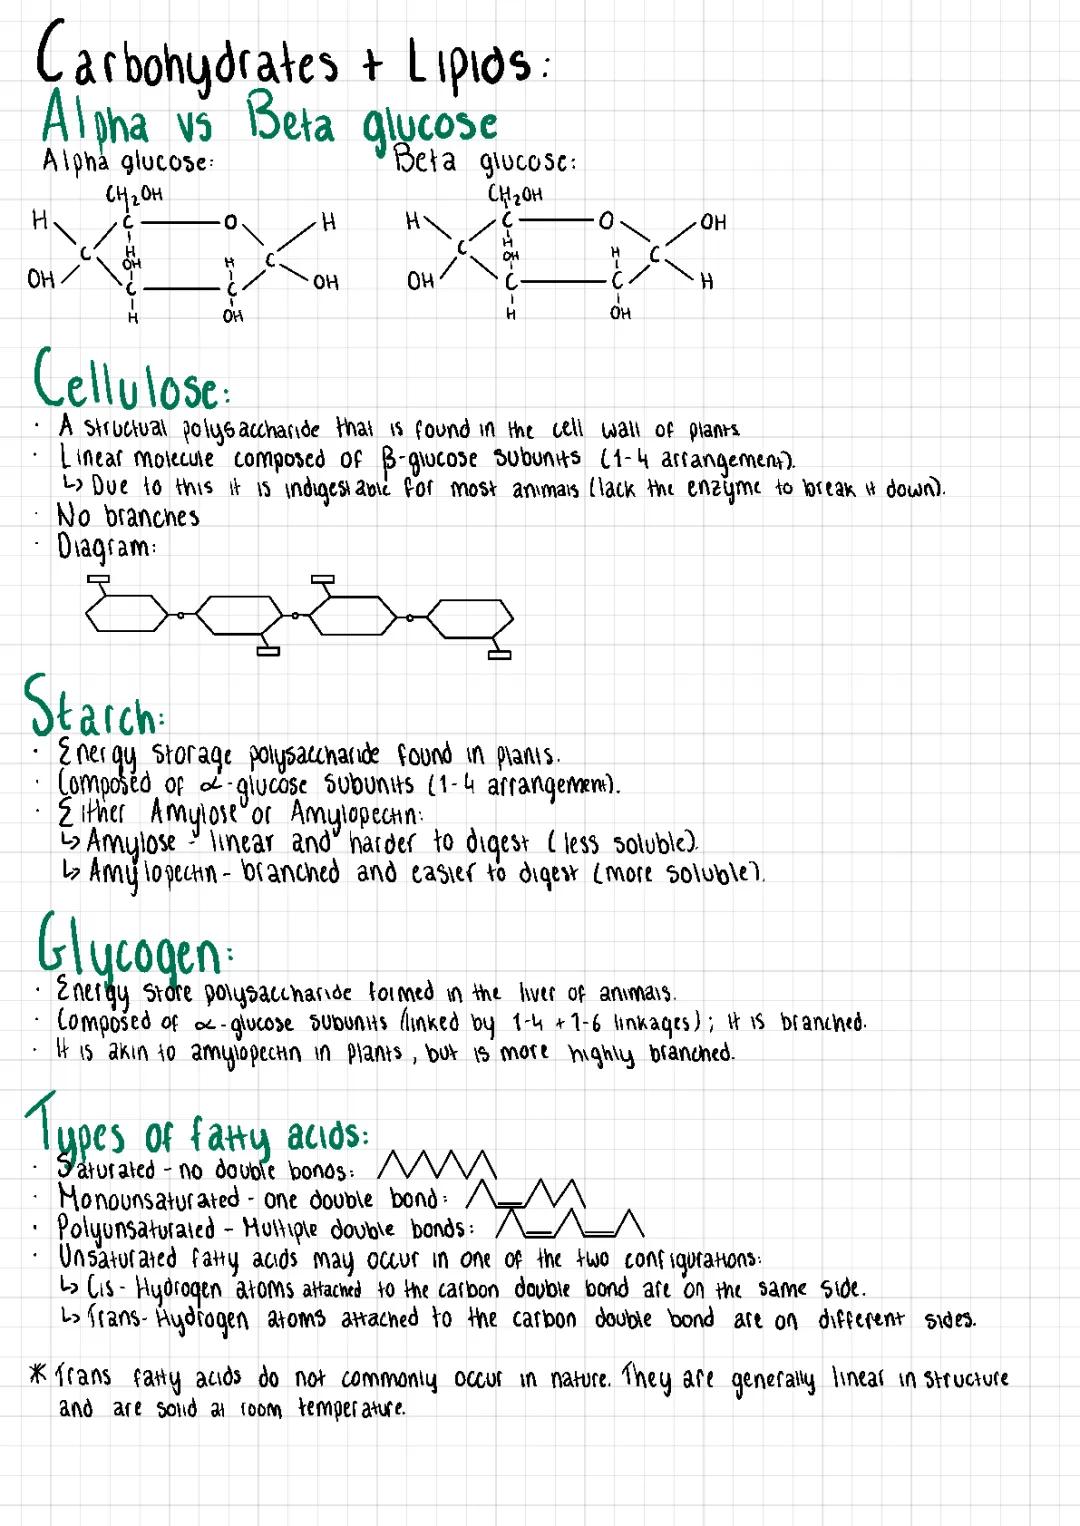 Carbohydrates + Lipids:
Alpha vs Beta glucose
Alpha glucose: Beta glucose:
CH2OH CH2OH
H C O H H C O OH
C H C C H C
OH OH H OH OH OH H H
C C C C
H OH H OH
Cellulose:
· A structual polysaccharide that is found in the cell wall of plants
· Linear molecule composed of β-glucose subunits (1-4 arrangement).
↳ Due to this it is indigestable for most animals (lack the enzyme to break it down).
· No branches
· Diagram:
Starch:
· Energy storage polysaccharide found in plants.
· Composed of α-glucose subunits (1-4 arrangement).
· Either Amylose or Amylopectin:
↳ Amylose - linear and harder to digest (less soluble).
↳ Amylopectin - branched and easier to digest (more soluble).
Glycogen:
· Energy store polysaccharide formed in the liver of animals.
· Composed of α-glucose subunits (linked by 1-4 + 1-6 linkages); it is branched.
· It is akin to amylopectin in plants, but is more highly branched.
Types of fatty acids:
· Saturated - no double bonds:
· Monounsaturated - one double bond:
· Polyunsaturated - Multiple double bonds:
· Unsaturated fatty acids may occur in one of the two configurations:
↳ Cis - Hydrogen atoms attached to the carbon double bond are on the same side.
↳ Trans - Hydrogen atoms attached to the carbon double bond are on different sides.
* Trans fatty acids do not commonly occur in nature. They are generally linear in structure
and are solid at room temperature.